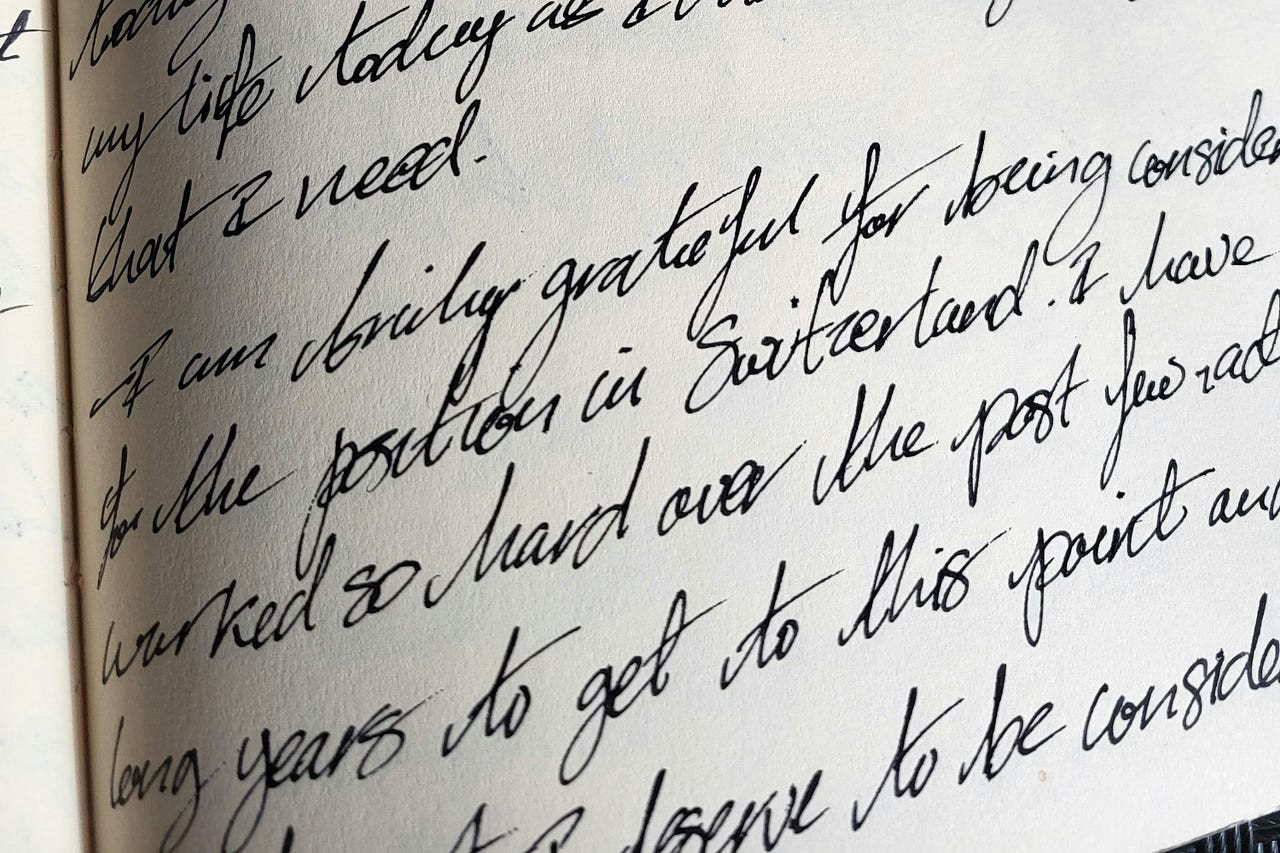 today
my life today as I
that I need.
I am truly grateful for being consider
for the position in Switzerland. I have
worked so hard over the past few
long years to get to this point and
I deserve to be conside